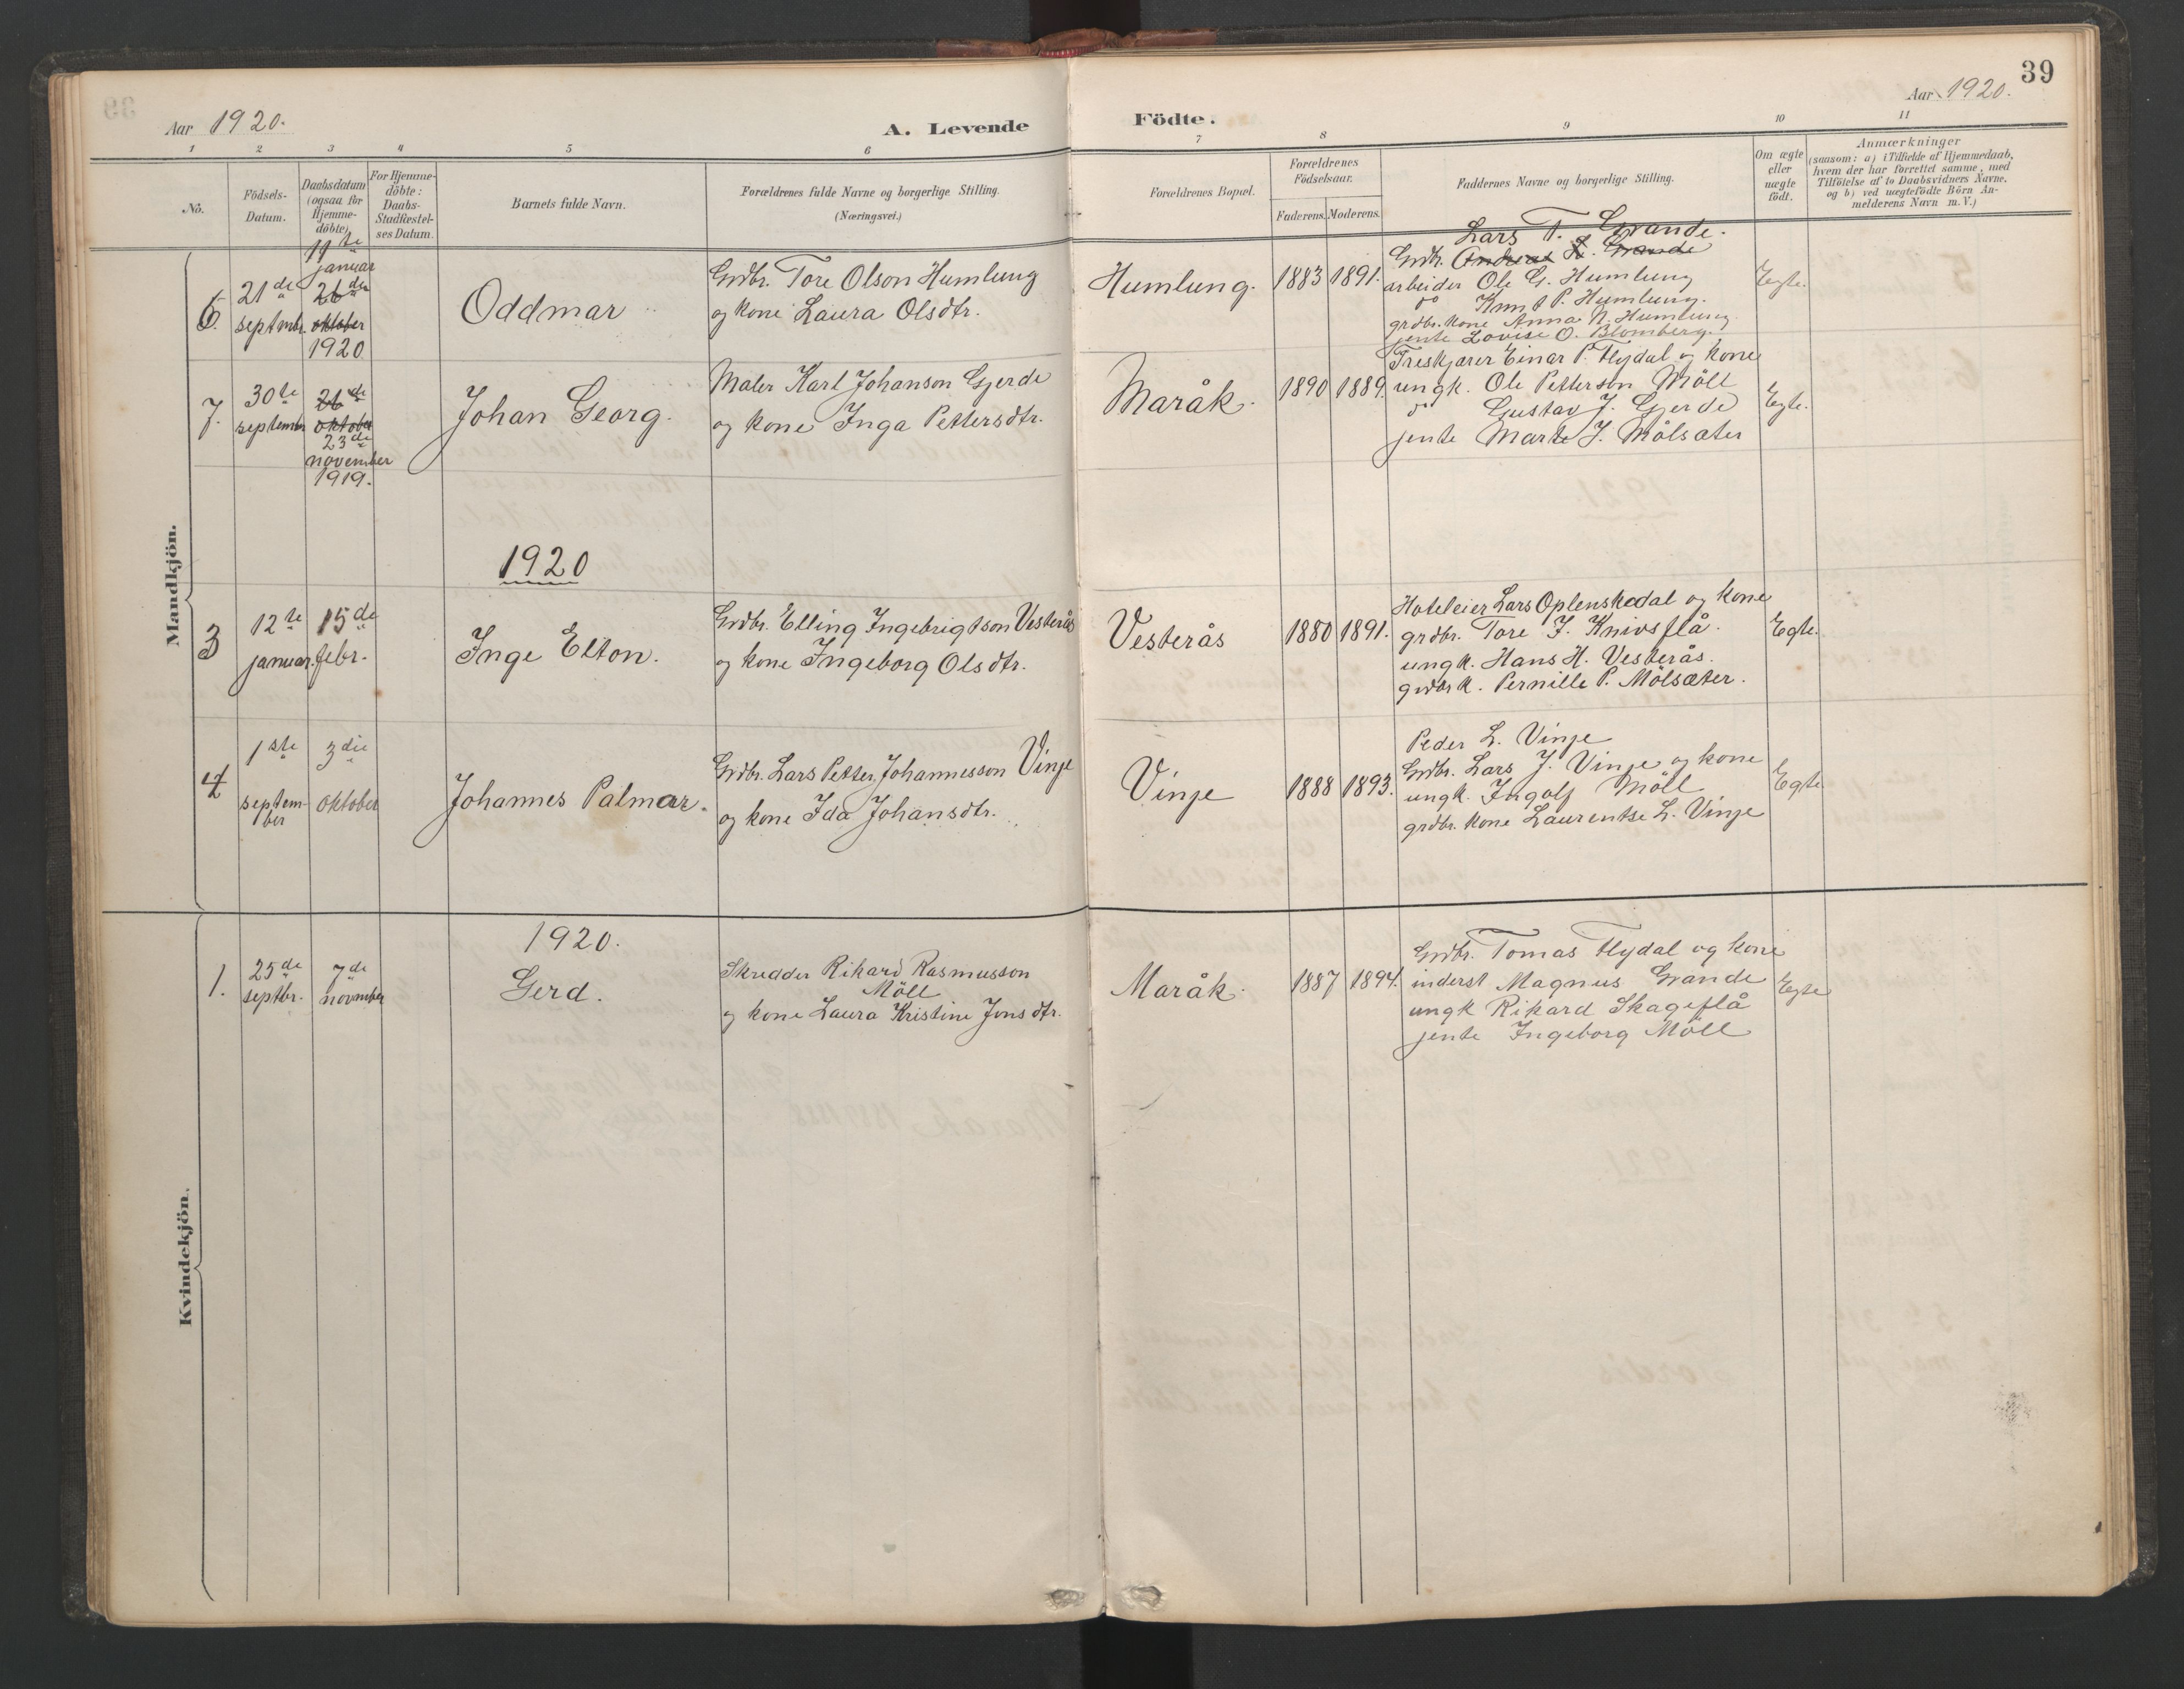 39
Aar 1920.
A. Levende
Födte.
Aar 1920.
1 2 3 4 5 6 7 8 9 10 11
No.
Födsels-
Datum.
Daabsdatum
(ogsaa for
Hjemme-
döbte)
For Hjemme-
döbte:
Daabs-
Stadfæstel-
ses Datum.
Barnets fulde Navn.
Forældrenes fulde Navne og borgerlige Stilling.
(Næringsvei.)
Forældrenes Bopæl.
Forældrenes
Födselsaar.
Faderens. Moderens.
Faddernes Navne og borgerlige Stilling.
Om ægte
eller
uægte
födt.
Anmærkninger
(saasom: a) i Tilfælde af Hjemmedaab,
hvem der har forrettet samme, med
Tilföielse af to Daabsvidners Navne,
og b) ved uægtefödte Börn An-
melderens Navn m. V.)
Mandkjön.
6.
21de
septmbr.
11te
januar
26de
oktober
1920
Oddmar
Grdbr. Tore Olson Humlung
og kone Laura Olsdtr.
Humlung.
1883 1891.
Lars T. Grande.
Grdbr. Andreas L. Grande
arbeider Ole G. Humlung
do Knut P. Humlung.
grdbr. kone Anna N. Humlung
jente Lovise O. Blomberg.
Egte.
7.
30te
septembr
26de
oktober
23de
november
1919.
Johan Georg.
Maler Karl Johanson Gjerde
og kone Inga Pettersdtr.
Maråk.
1890 1889.
Treskjærer Einar P. Flydal og kone
ungk. Ole Petterson Möll
do Gustav J. Gjerde
jente Marte J. Mölsæter
Egte.
1920
3
12te
januar.
15de
febr.
Inge Elton.
Grdbr. Elling Ingebrigtson Vesterås
og kone Ingeborg Olsdtr.
Vesterås
1880 1891.
Hoteleier Lars Oplenskedal og kone
grdbr. Tore J. Knivsflå.
ungk. Hans H. Vesterås.
grdbr k. Pernille P. Mölsæter.
Egte.
4
1ste
septem-
ber
3die
oktober
Johannes Palmar.
Grdbr. Lars Petter Johannesson Vinje
og kone Ida Johansdtr.
Vinje
1888 1893.
Peder L. Vinje
Grdbr. Lars J. Vinje og kone
ungk. Ingolf Möll
grdbr. kone Laurentse L. Vinje
Egte.
Kvindekjön.
1920.
1.
25de
septbr.
7de
novmber
Gerd.
Skredder Rikard Rasmusson
Möll
og kone Laura Kristine Jonsdtr.
Maråk.
1887 1894.
Grdbr. Tomas Flydal og kone
inderst Magnus Grande
ungk Rikard Skageflå
jente Ingeborg Möll
Egte